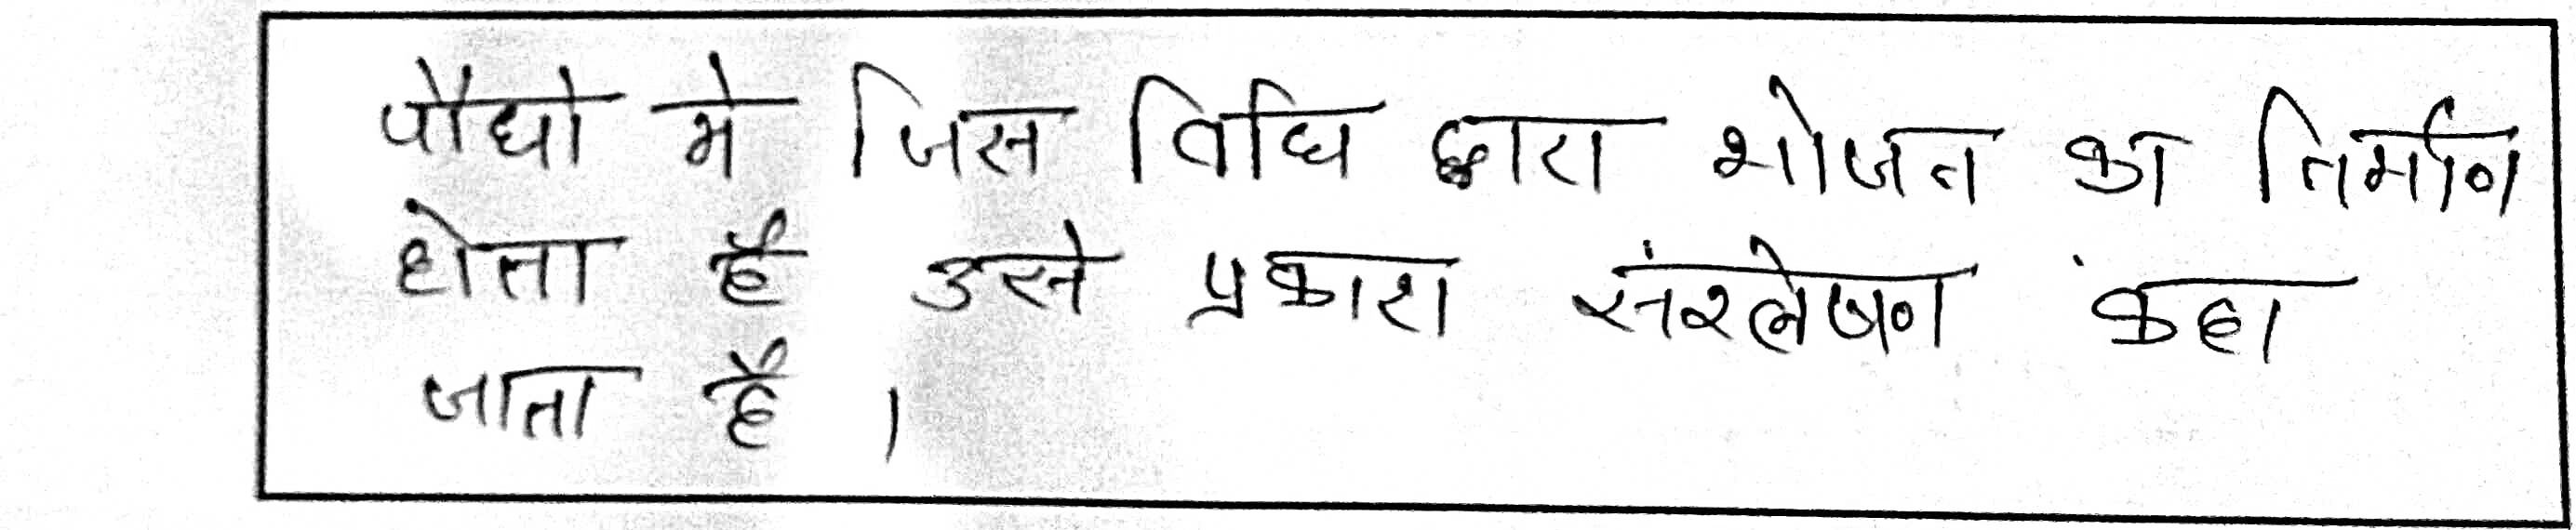 पौधो मे जिस विधि द्वारा भोजन का निर्माण
होता है उसे प्रकाश संश्लेषण कहा
जाता है ।